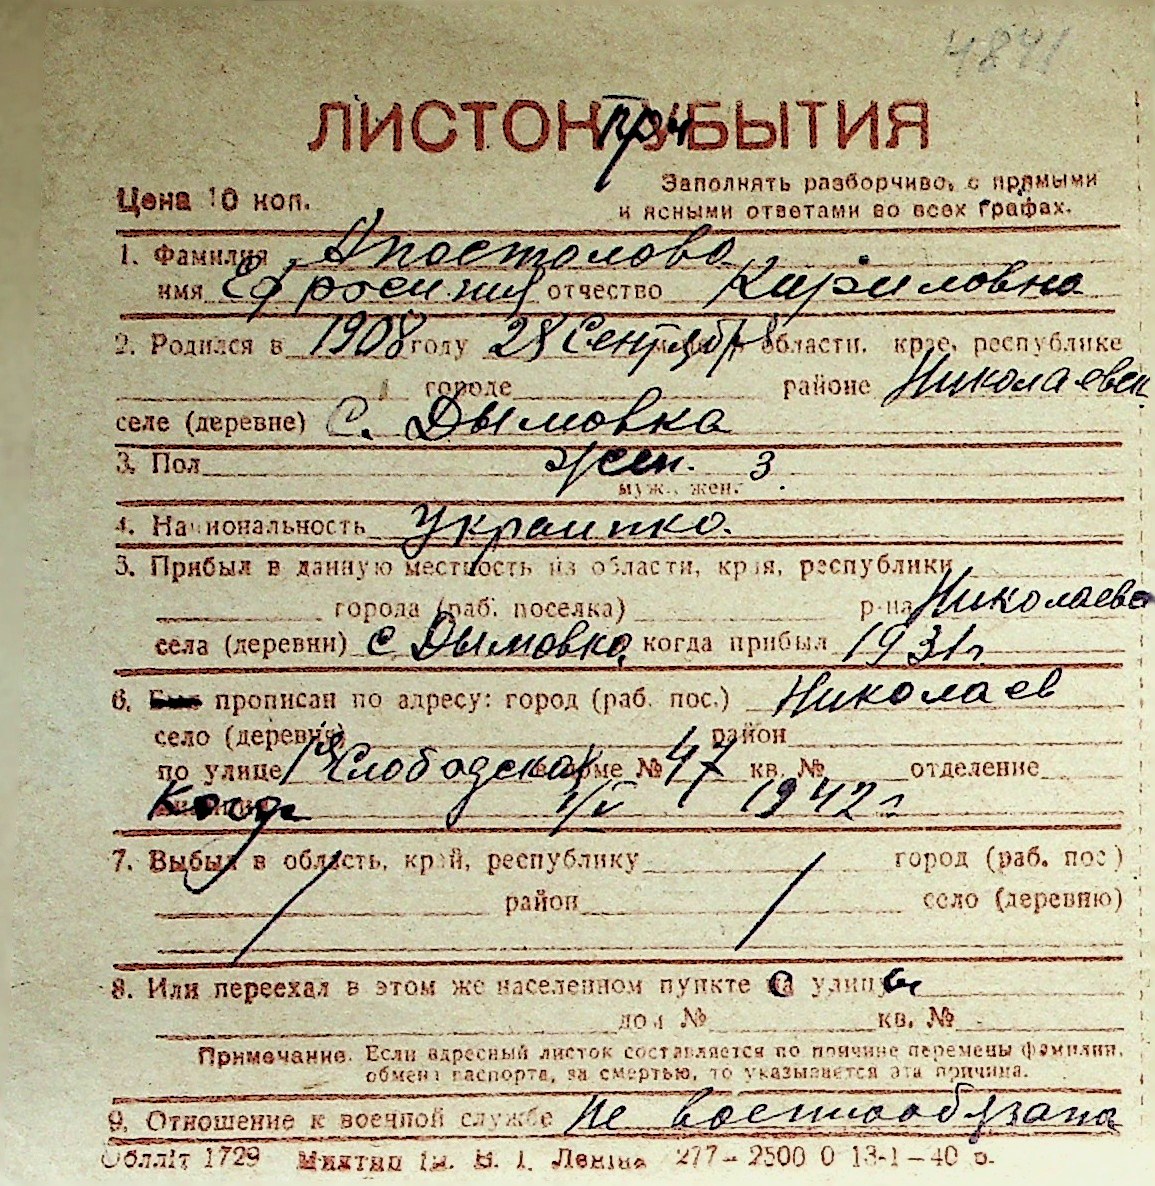 4841
ЛИСТОК При УБЫТИЯ
Цена 10 коп.
Заполнять разборчиво, с прямыми
и ясными ответами во всех графах.
1. Фамилия Апостолова
имя Ефросиния отчество Кириловна
2. Родился в 1908 году 28 Сентября области, крае, республике
городе районе Николаевск
селе (деревне) С. Дымовка
3. Пол жен. 3
муж., жен.
4. Национальность Украинка.
5. Прибыл в данную местность из области, края, республики
города (раб. поселка) р-на Николаевс
села (деревни) с Дымовка когда прибыл 1931 г.
6. Был прописан по адресу: город (раб. пос.) Николаев
село (деревня) район
по улице 1я Слободская в доме № 47 кв. № отделение
милиции 1942 г
7. Выбыл в область, край, республику город (раб. пос.)
район село (деревню)
8. Или переехал в этом же населенном пункте с улицы
дом № кв. №
Примечание. Если адресный листок составляется по причине перемены фамилии,
обмена паспорта, за смертью, то указывается эта причина.
9. Отношение к военной службе Не военнообязана
Облліт 1729 Миктип Ім. В. І. Леніна 277–2500 0 13-1–40 р.